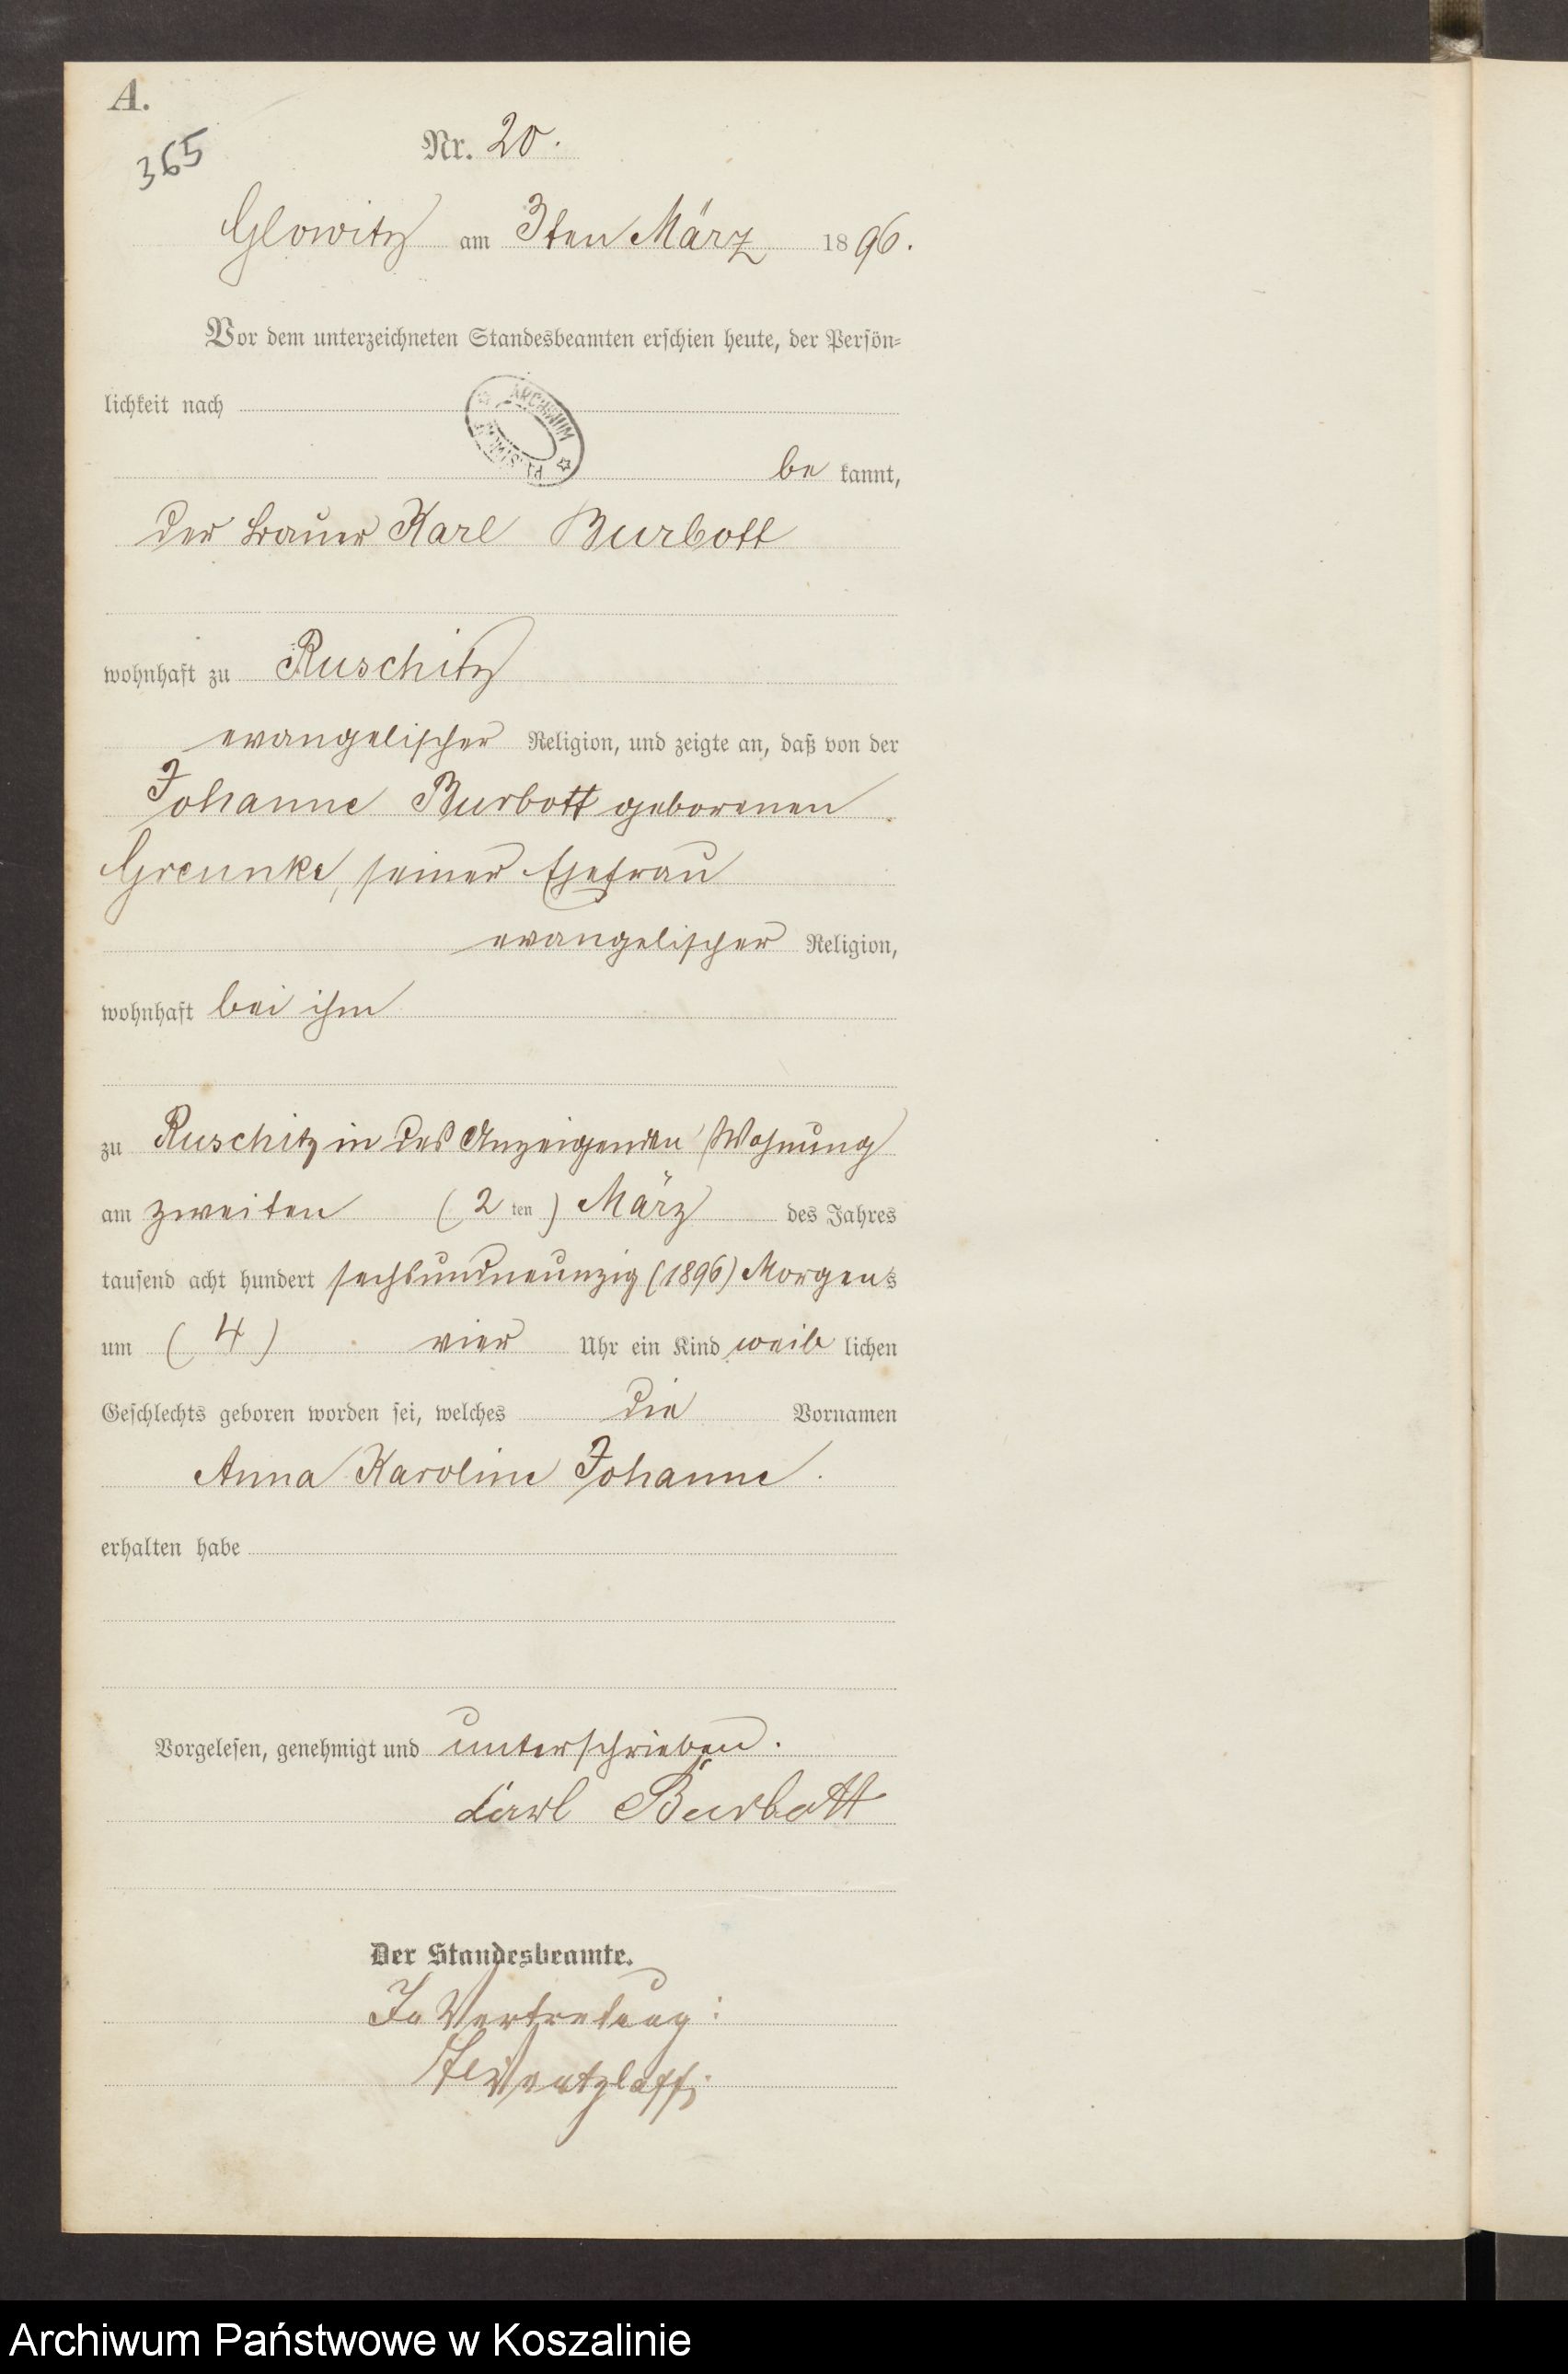 A.
365
Nr. 20.
Glowitz am 3ten März 1896.
Vor dem unterzeichneten Standesbeamten erschien heute, der Persön-
lichkeit nach
ARCHIWUM
be kannt,
der Bauer Karl Burbott
wohnhaft zu Ruschitz
evangelischer Religion, und zeigte an, daß von der
Johanne Burbott geborenen
Greunke, seiner Ehefrau
evangelischer Religion,
wohnhaft bei ihm
zu Ruschitz in des Anzeigenden Wohnung
am zweiten (2 ten) März des Jahres
tausend acht hundert sechsundneunzig (1896) Morgens
um (4) vier Uhr ein Kind weib lichen
Geschlechts geboren worden sei, welches die Vornamen
Anna Karoline Johanne.
erhalten habe
Vorgelesen, genehmigt und unterschrieben.
Carl Burbott
Der Standesbeamte.
In Vertretung:
Wentzlaff.
Archiwum Państwowe w Koszalinie